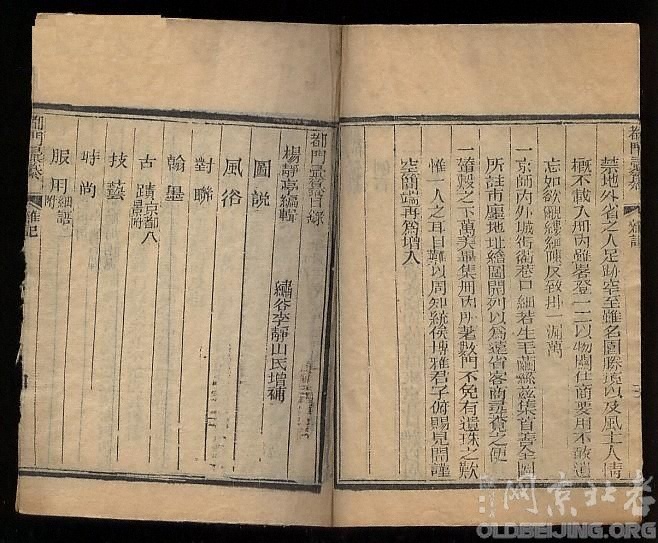 都門彙纂 雜記
禁地外省之人足跡罕至雖名園勝境以及風土人情
概不載入册內雖畧登一二以物關仕商要用不敢遺
忘如欲覼縷細陳反致掛一漏萬
一京師內外城街衢巷口細若牛毛繭絲茲集首善全圖
所註市廛地址繪圖開列以爲遠省客商尋覓之便
一輦轂之下萬美畢集册內所著數門不免有遺珠之歎
惟一人之耳目難以周知統俟博雅君子俯賜見聞謹
空簡端再爲增入
都門彙纂目錄
楊靜亭編輯
繡谷李靜山氏增補
圖說
風俗
對聯
翰墨
古蹟 京都八景附
技藝
時尚
服用 細語附
都門彙纂 雜記
老北京网
OLDBEIJING.ORG